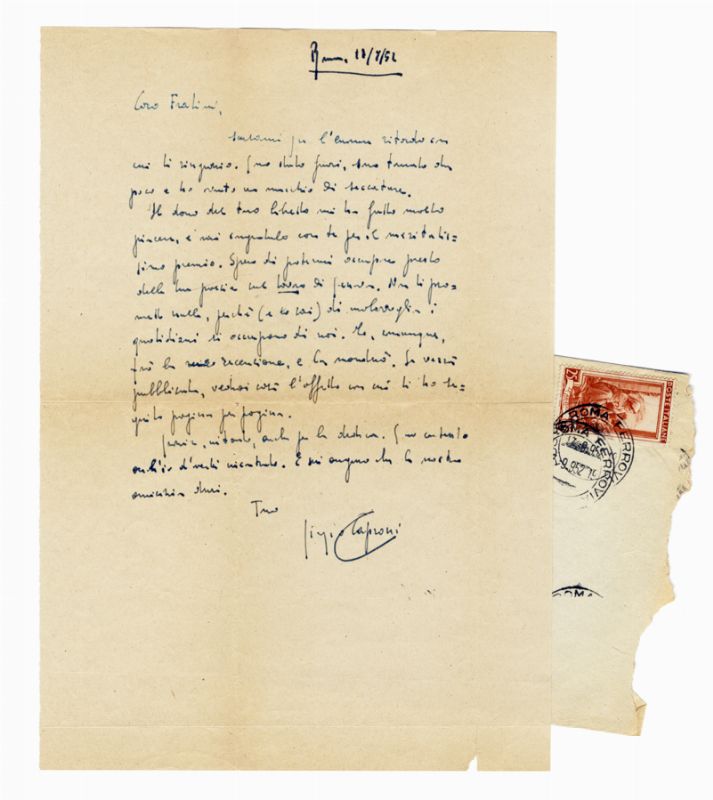 Roma, 18/8/52
Caro Fratini,
scusami per l'enorme ritardo con
cui ti ringrazio. Sono stato fuori, sono tornato da
poco e ho avuto un mucchio di seccature.
Il dono del tuo libretto mi ha fatto molto
piacere, e mi congratulo con te per il meritatis-
simo premio. Spero di potermi occupare presto
della tua poesia sul Lavoro di Genova. Non ti pro-
metto nulla, perché (e lo sai) di malavoglia i
quotidiani si occupano di noi. Io, comunque,
farò la recensione, e la manderò. Se verrà
pubblicata, vedrai così l'affetto con cui ti ho se-
guito pagina per pagina.
Grazie, intanto, anche per la dedica. Sono contento
anch'io d'averti incontrato. E mi auguro che la nostra
amicizia duri.
Tuo
Giorgio Caproni
POSTE ITALIANE
ROMA FERROVIA
ROMA